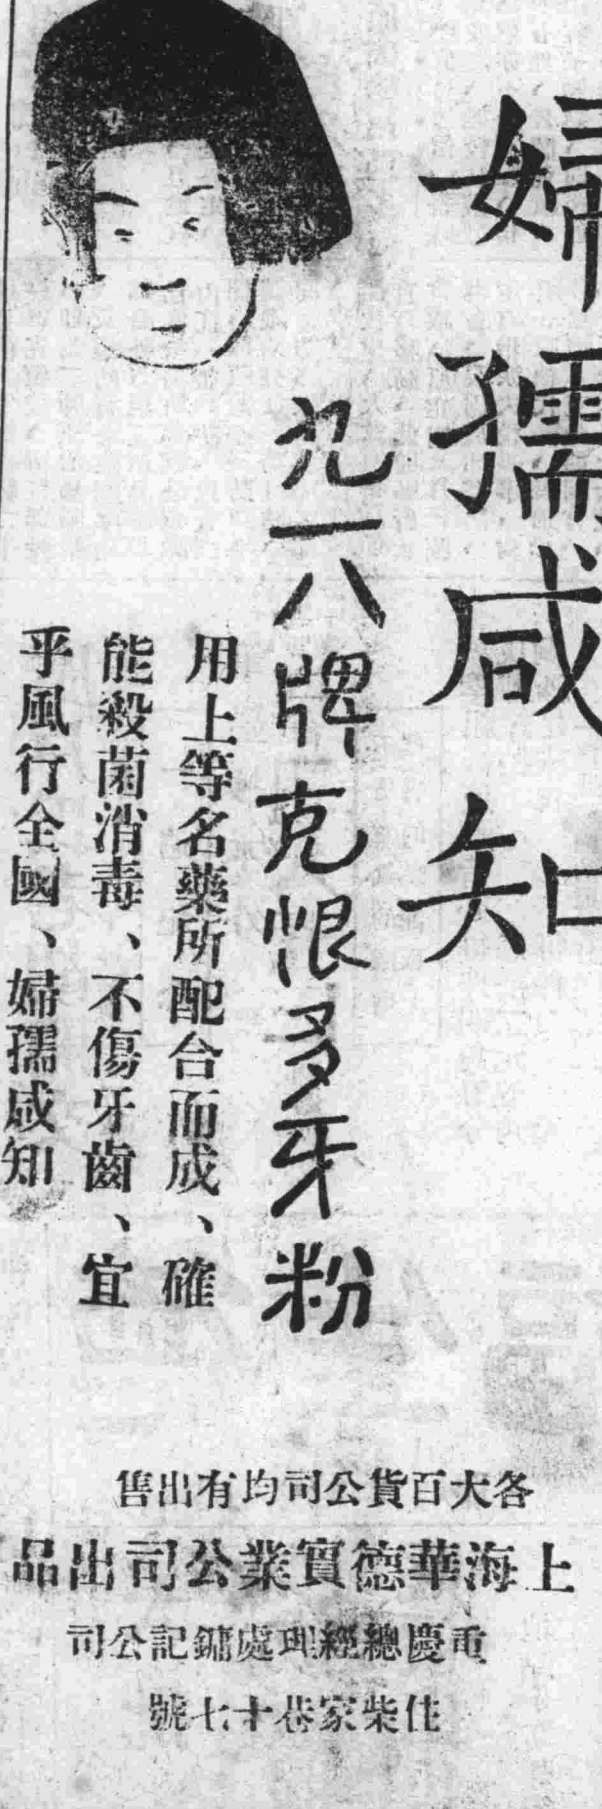 婦孺咸知
九一八牌克恨多牙粉
用上等名藥所配合而成、確
能殺菌消毒、不傷牙齒、宜
乎風行全國、婦孺咸知
各大百貨公司均有出售
上海華德實業公司出品
重慶總經理處鏞記公司
住柴家巷十七號